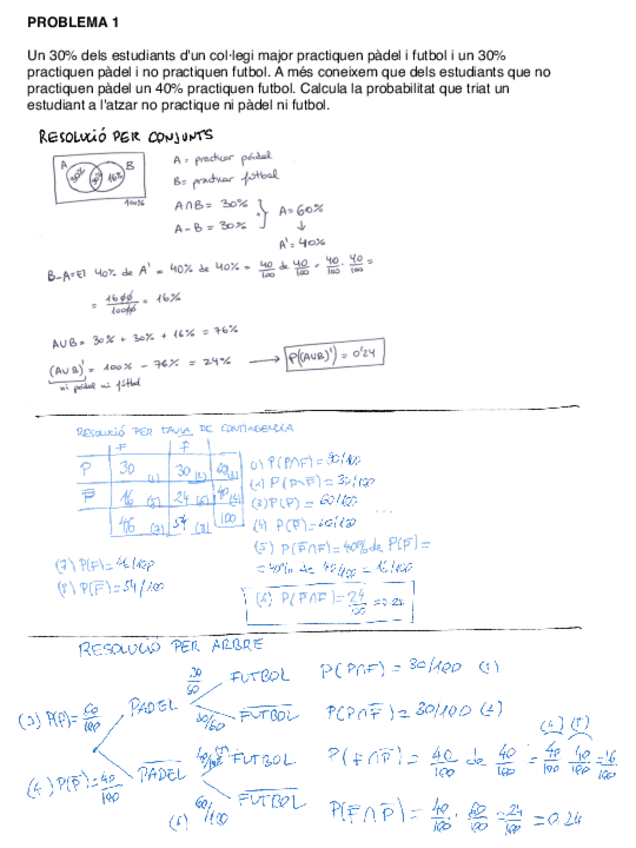 PROBLEMA 1
Un 30% dels estudiants d'un col·legi major practiquen pàdel i futbol i un 30%
practiquen pàdel i no practiquen futbol. A més coneixem que dels estudiants que no
practiquen pàdel un 40% practiquen futbol. Calcula la probabilitat que triat un
estudiant a l'atzar no practique ni pàdel ni futbol.
RESOLUCIÓ PER CONJUNTS
A B 30% 30% 16% 100%
A = practicar pádel
B = practicar fútbol
A∩B = 30%
A - B = 30%
} A = 60%
↓
A' = 40%
B-A = El 40% de A' = 40% de 40% = 40/100 de 40/100 = 40/100 · 40/100 =
= 1600/10000 = 16%
A∪B = 30% + 30% + 16% = 76%
(A∪B)' = 100% - 76% = 24% → P((A∪B)') = 0'24
ni pádel ni fútbol
RESOLUCIÓ PER TAULA DE CONTINGÈNCIA
F F̅
P 30 (1) 30 (2) 60 (3)
P̅ 16 (5) 24 (6) 40 (4)
46 (7) 54 (8) 100
(1) P(P∩F) = 30/100
(3) P(P) = 60/100
(5) P(P̅∩F) = 40% de P(P̅) =
= 40% de 40/100 = 16/100
(6) = 24/100 = 0.24
(7) P(F) = 46/100
(8) P(F̅) = 54/100
RESOLUCIÓ PER ARBRE
(3) P(P) = 60/100 PADEL 30/60 FUTBOL P(P∩F) = 30/100 (1)
30/60 F̅U̅T̅B̅O̅L̅ P(P∩F̅) = 30/100 (2)
(4) P(P̅) = 40/100 P̅A̅D̅E̅L̅ 40/100 (5) FUTBOL P(F∩P̅) = 40/100 de 40/100 = 40/100 40/100 = 16/100
(6) 60/100 F̅U̅T̅B̅O̅L̅ P(F̅∩P̅) = 40/100 · 60/100 = 24/100 = 0.24